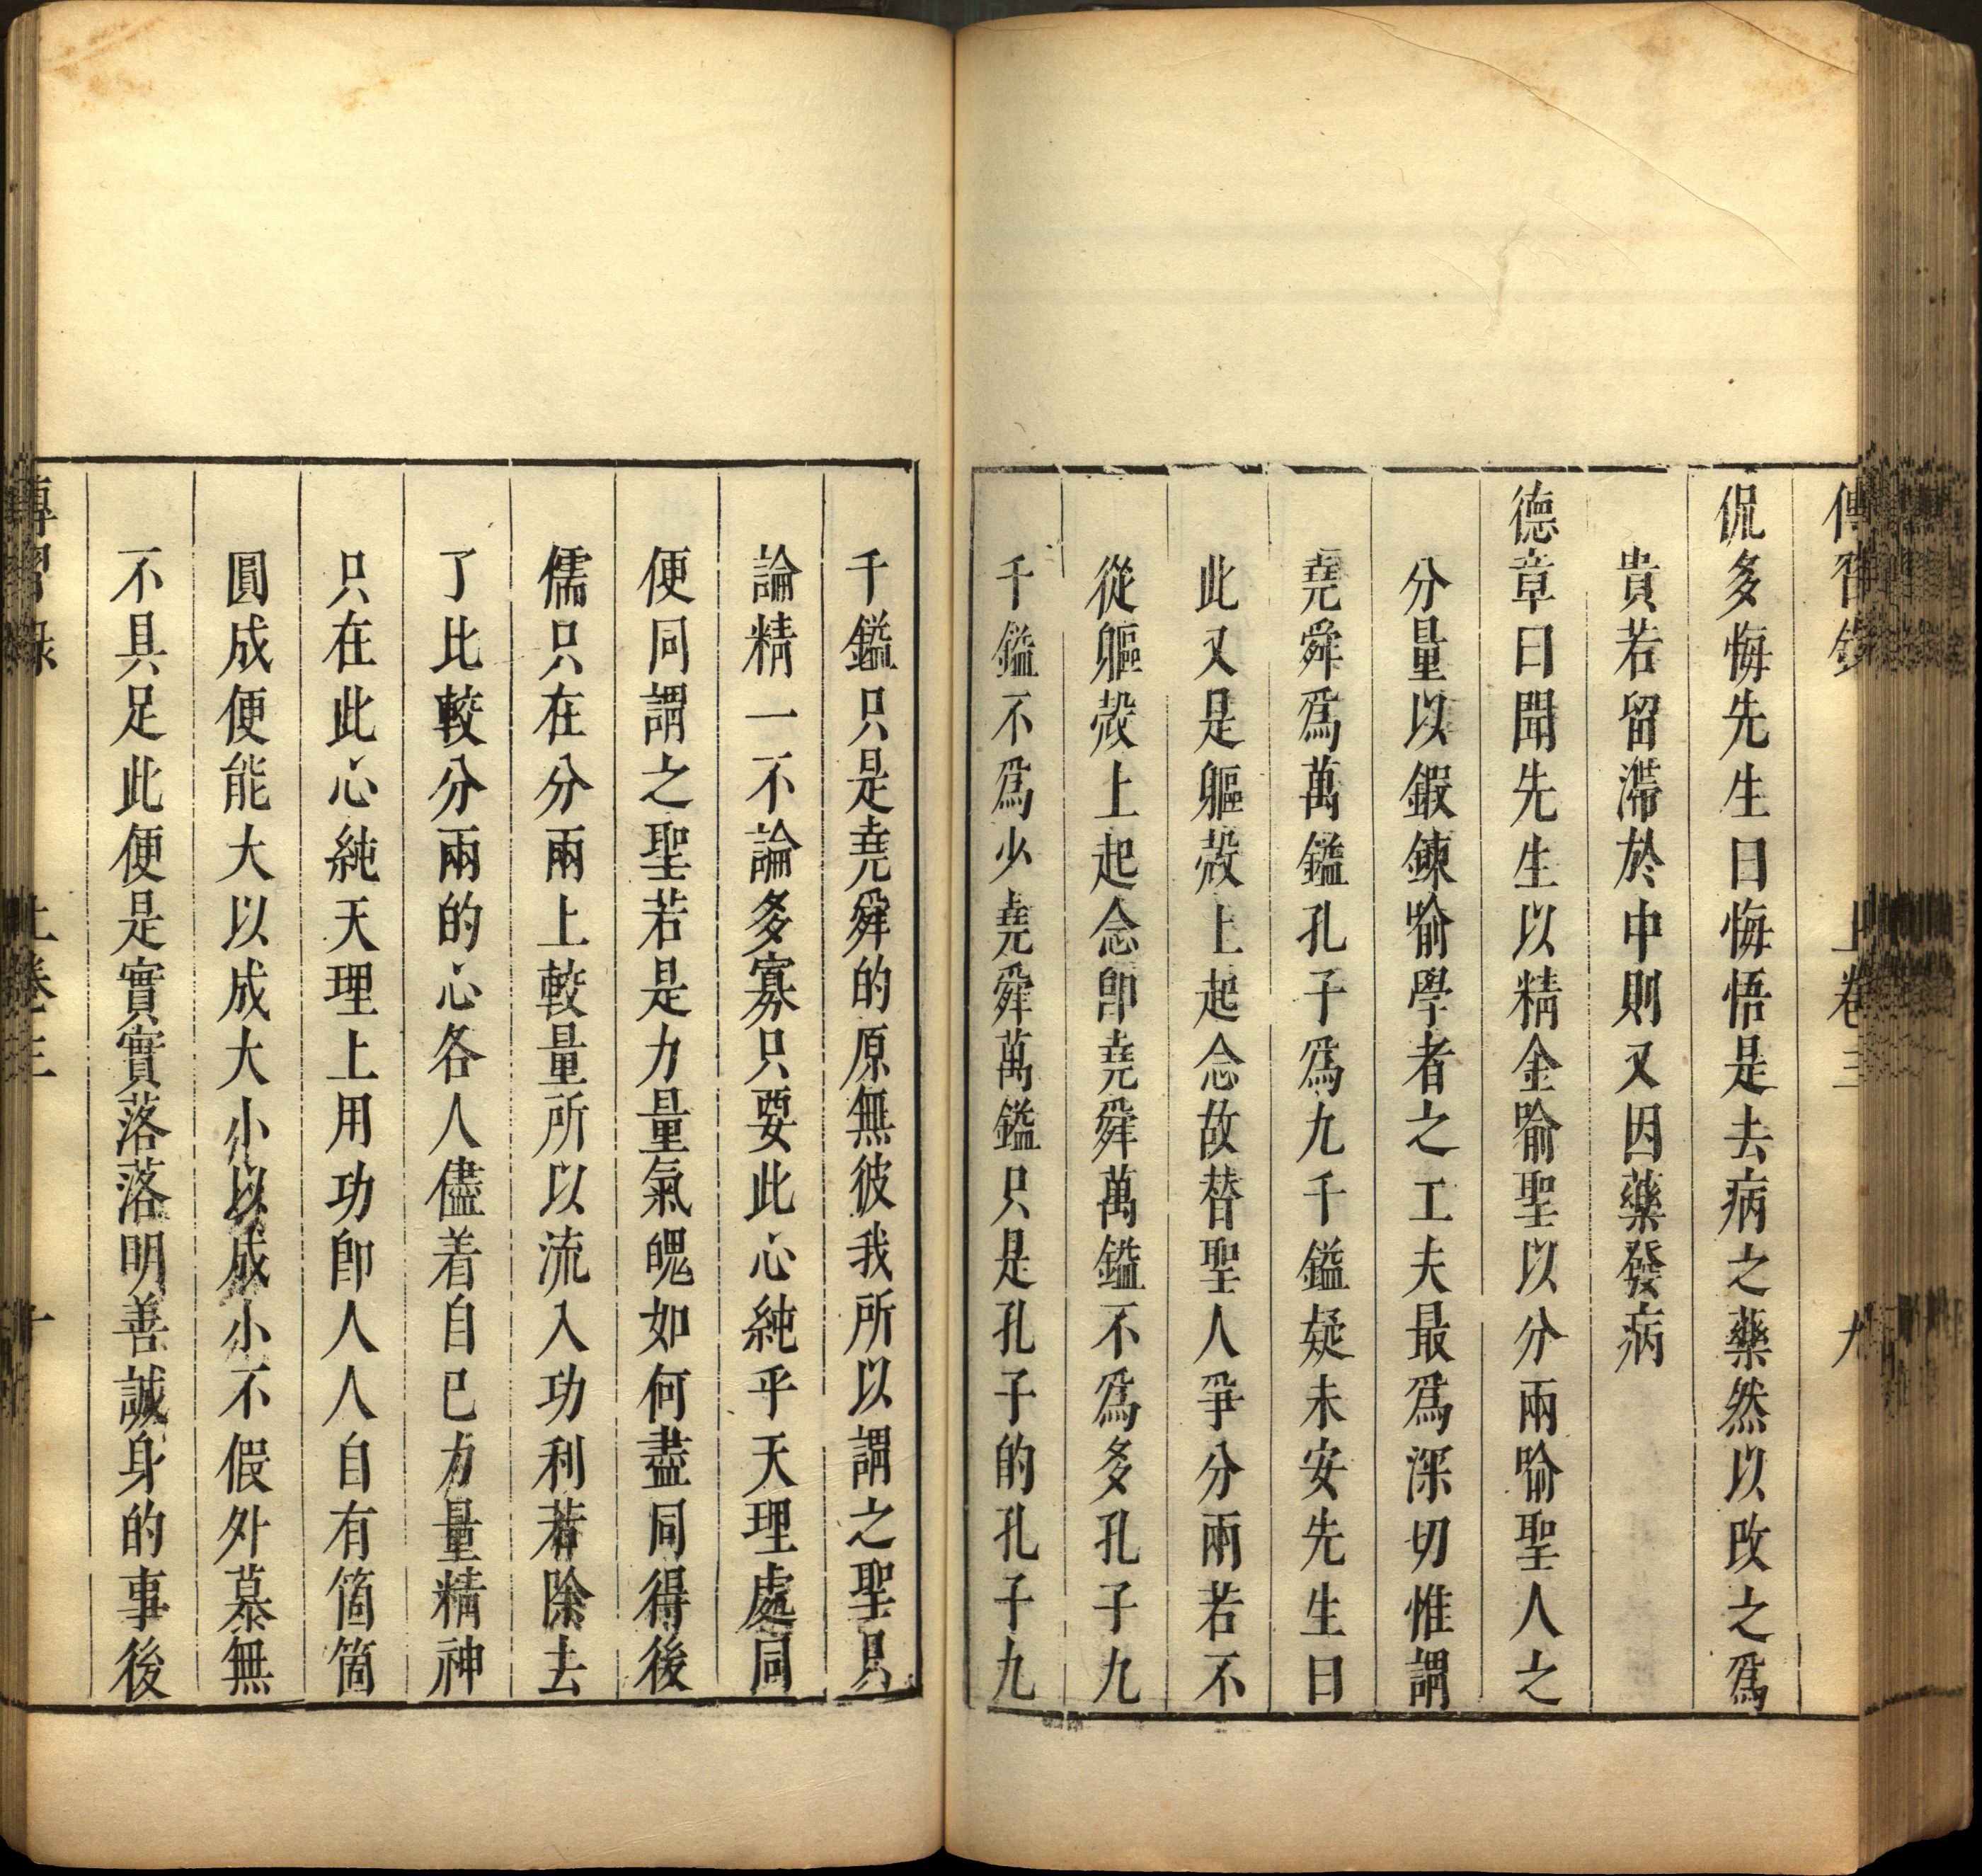 傳習錄 上卷三 九
侃多悔先生曰悔悟是去病之藥然以改之爲
貴若留滯於中則又因藥發病
德章曰聞先生以精金喻聖以分兩喻聖人之
分量以鍛鍊喻學者之工夫最爲深切惟謂
堯舜爲萬鎰孔子爲九千鎰疑未安先生曰
此又是軀殼上起念故替聖人爭分兩若不
從軀殼上起念卽堯舜萬鎰不爲多孔子九
千鎰不爲少堯舜萬鎰只是孔子的孔子九
千鎰只是堯舜的原無彼我所以謂之聖只
論精一不論多寡只要此心純乎天理處同
便同謂之聖若是力量氣魄如何盡同得後
儒只在分兩上較量所以流入功利若除去
了比較分兩的心各人儘着自己力量精神
只在此心純天理上用功卽人人自有箇箇
圓成便能大以成大小以成小不假外慕無
不具足此便是實實落落明善誠身的事後
傳習錄 上卷三 十